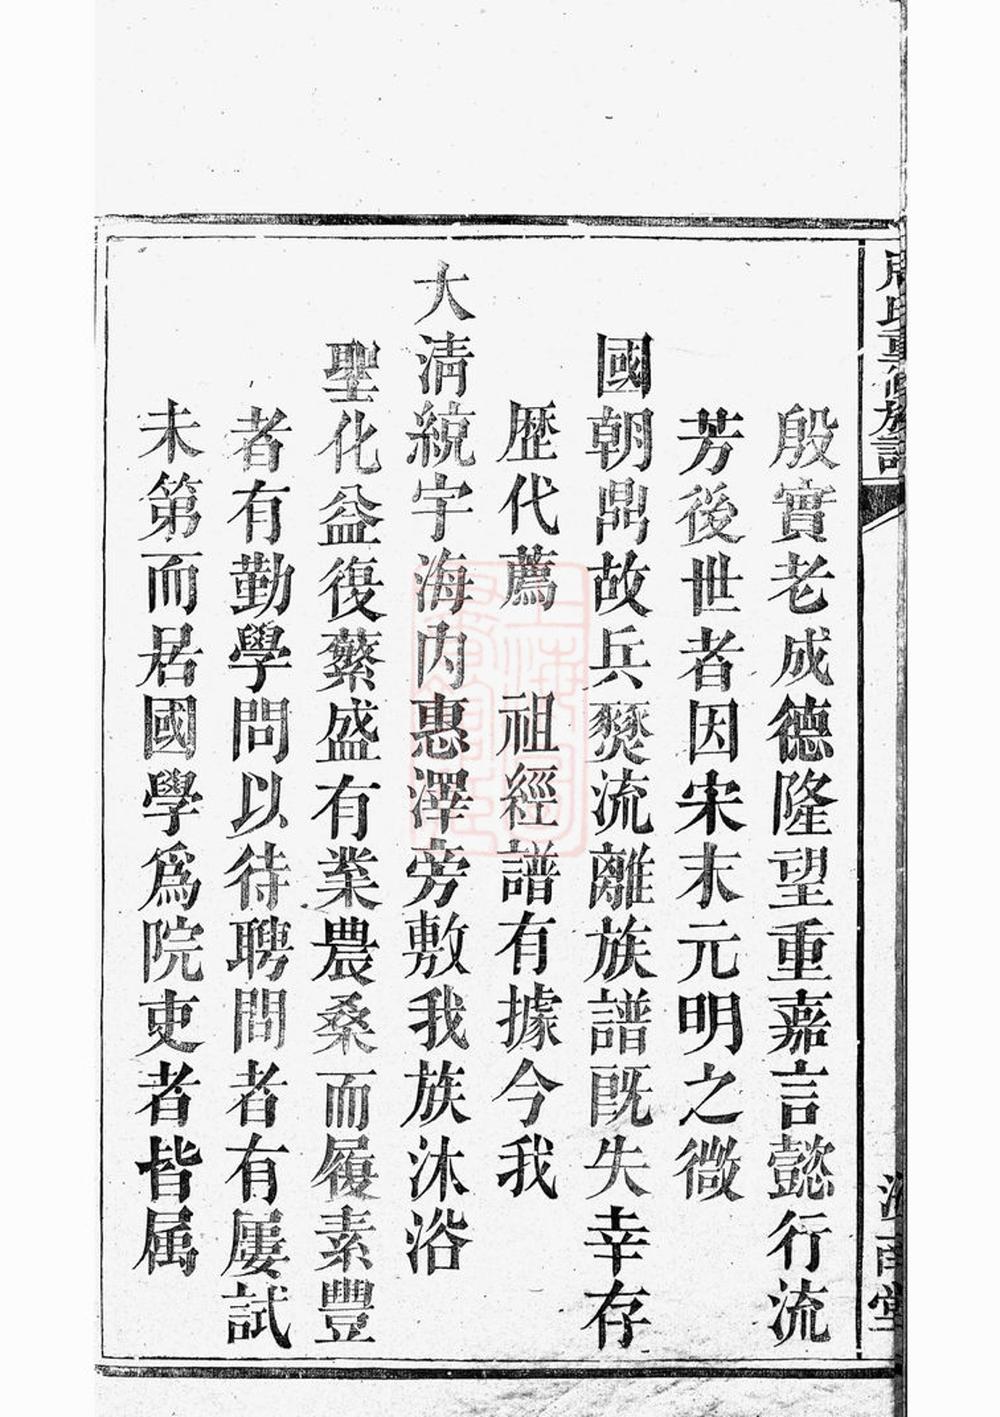 殷實老成德隆望重嘉言懿行流
芳後世者因宋末元明之微
國朝鼎故兵燹流離族譜既失幸存
歷代薦 祖經譜有據今我
大淸統宇海内惠澤旁敷我族沐浴
聖化益復蘩盛有業農桑而履素豐
者有勤學問以待聘問者有屢試
未第而居國學爲院吏者皆属